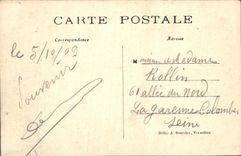 CARTE POSTALE
Correspondance
Adresse
le 5/10/09
Souvenir
de
Monsieur et Madame
Rollin
61 allée du Nord
La Garenne Colombes
Seine